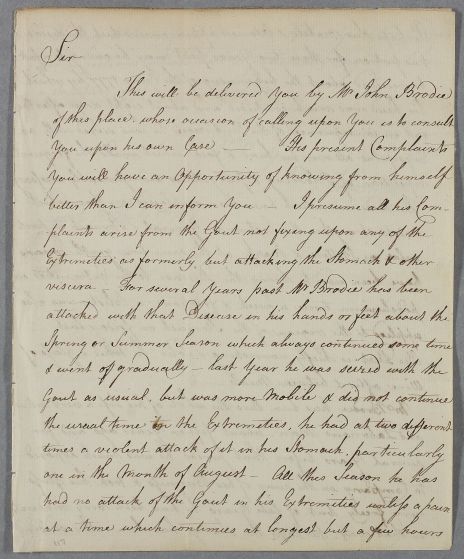 Sir
This will be delivered You by Mr John Brodie
of this place, whose occasion of calling upon You is to consult
You upon his own Case — His present Complaints
You will have an Opportunity of knowing from himself
better than I can inform You — I presume all his Com-
plaints arise from the Gout not fixing upon any of the
Extremities as formerly, but attacking the Stomach & other
viscera — For several Years past Mr Brodie has been
attacked with that Disease in his hands or feet about the
Spring or Summer Season which always continued some time
& went off gradually — last Year he was seized with the
Gout as usual, but was more Mobile & did not continue
the usual time in the Extremities, he had at two different
times a violent attack of it in his Stomach, particularly
one in the Month of August — All this Season he has
had no attack of the Gout in his Extremities unless a pain
at a time which continues at longest but a few hours